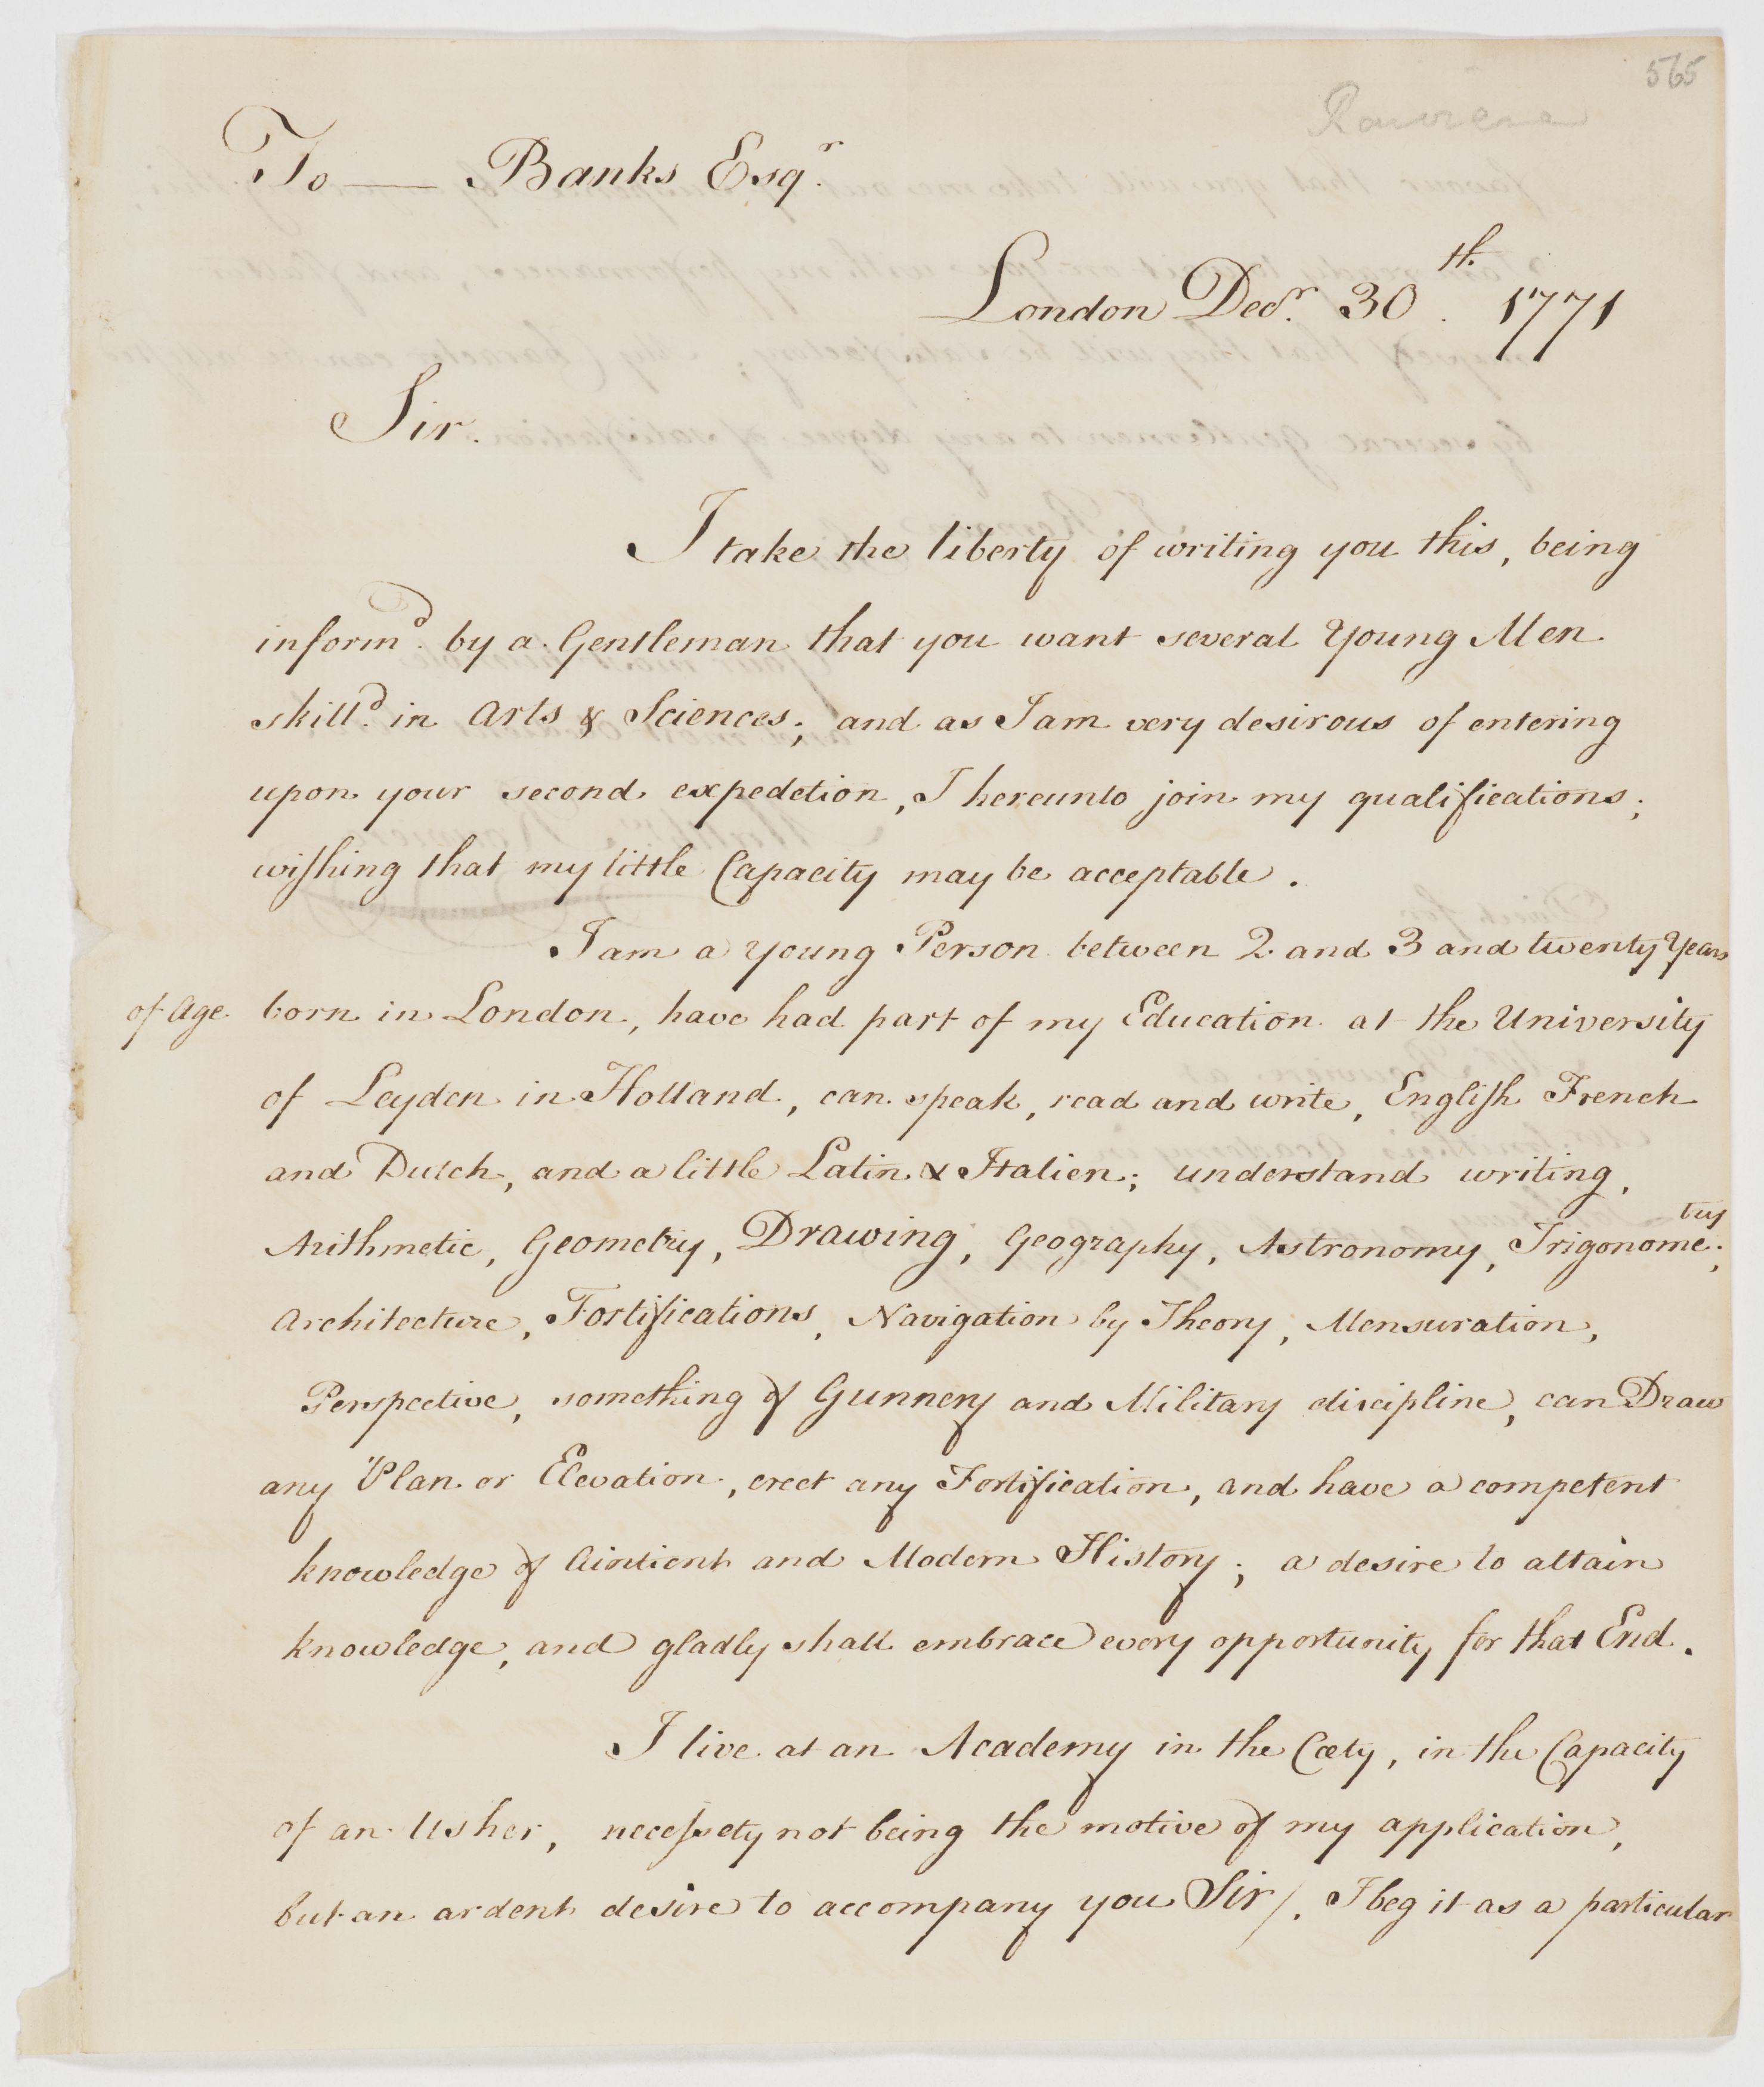 565
To — Banks Esqr.
London Decr. 30th. 1771
Sir.
I take the liberty of writing you this, being
inform'd. by a Gentleman that you want several Young Men
skill'd. in Arts & Sciences; and as I am very desirous of entering
upon your second expedetion, I hereunto join my qualifications;
wishing that my little Capacity may be acceptable.
I am a young Person between 2 and 3 and twenty Years
of Age. born in London, have had part of my Education at the University
of Leyden in Holland, can speak, read and write, English French
and Dutch, and a little Latin & Italien; understand writing,
Arithmetic, Geometry, Drawing, Geography, Astronomy, Trigonometry;
Architecture, Fortifications, Navigation by Theory, Mensuration,
Perspective, something of Gunnery and Military discipline, can Draw
any Plan or Elevation, erect any Fortification, and have a competent
knowledge of Aintient and Modern History; a desire to attain
knowledge, and gladly shall embrace every opportunity for that End.
I live at an Academy in the Cety, in the Capacity
of an Usher, necessety not being the motive of my application,
but an ardent desire to accompany you Sir/. I beg it as a particular